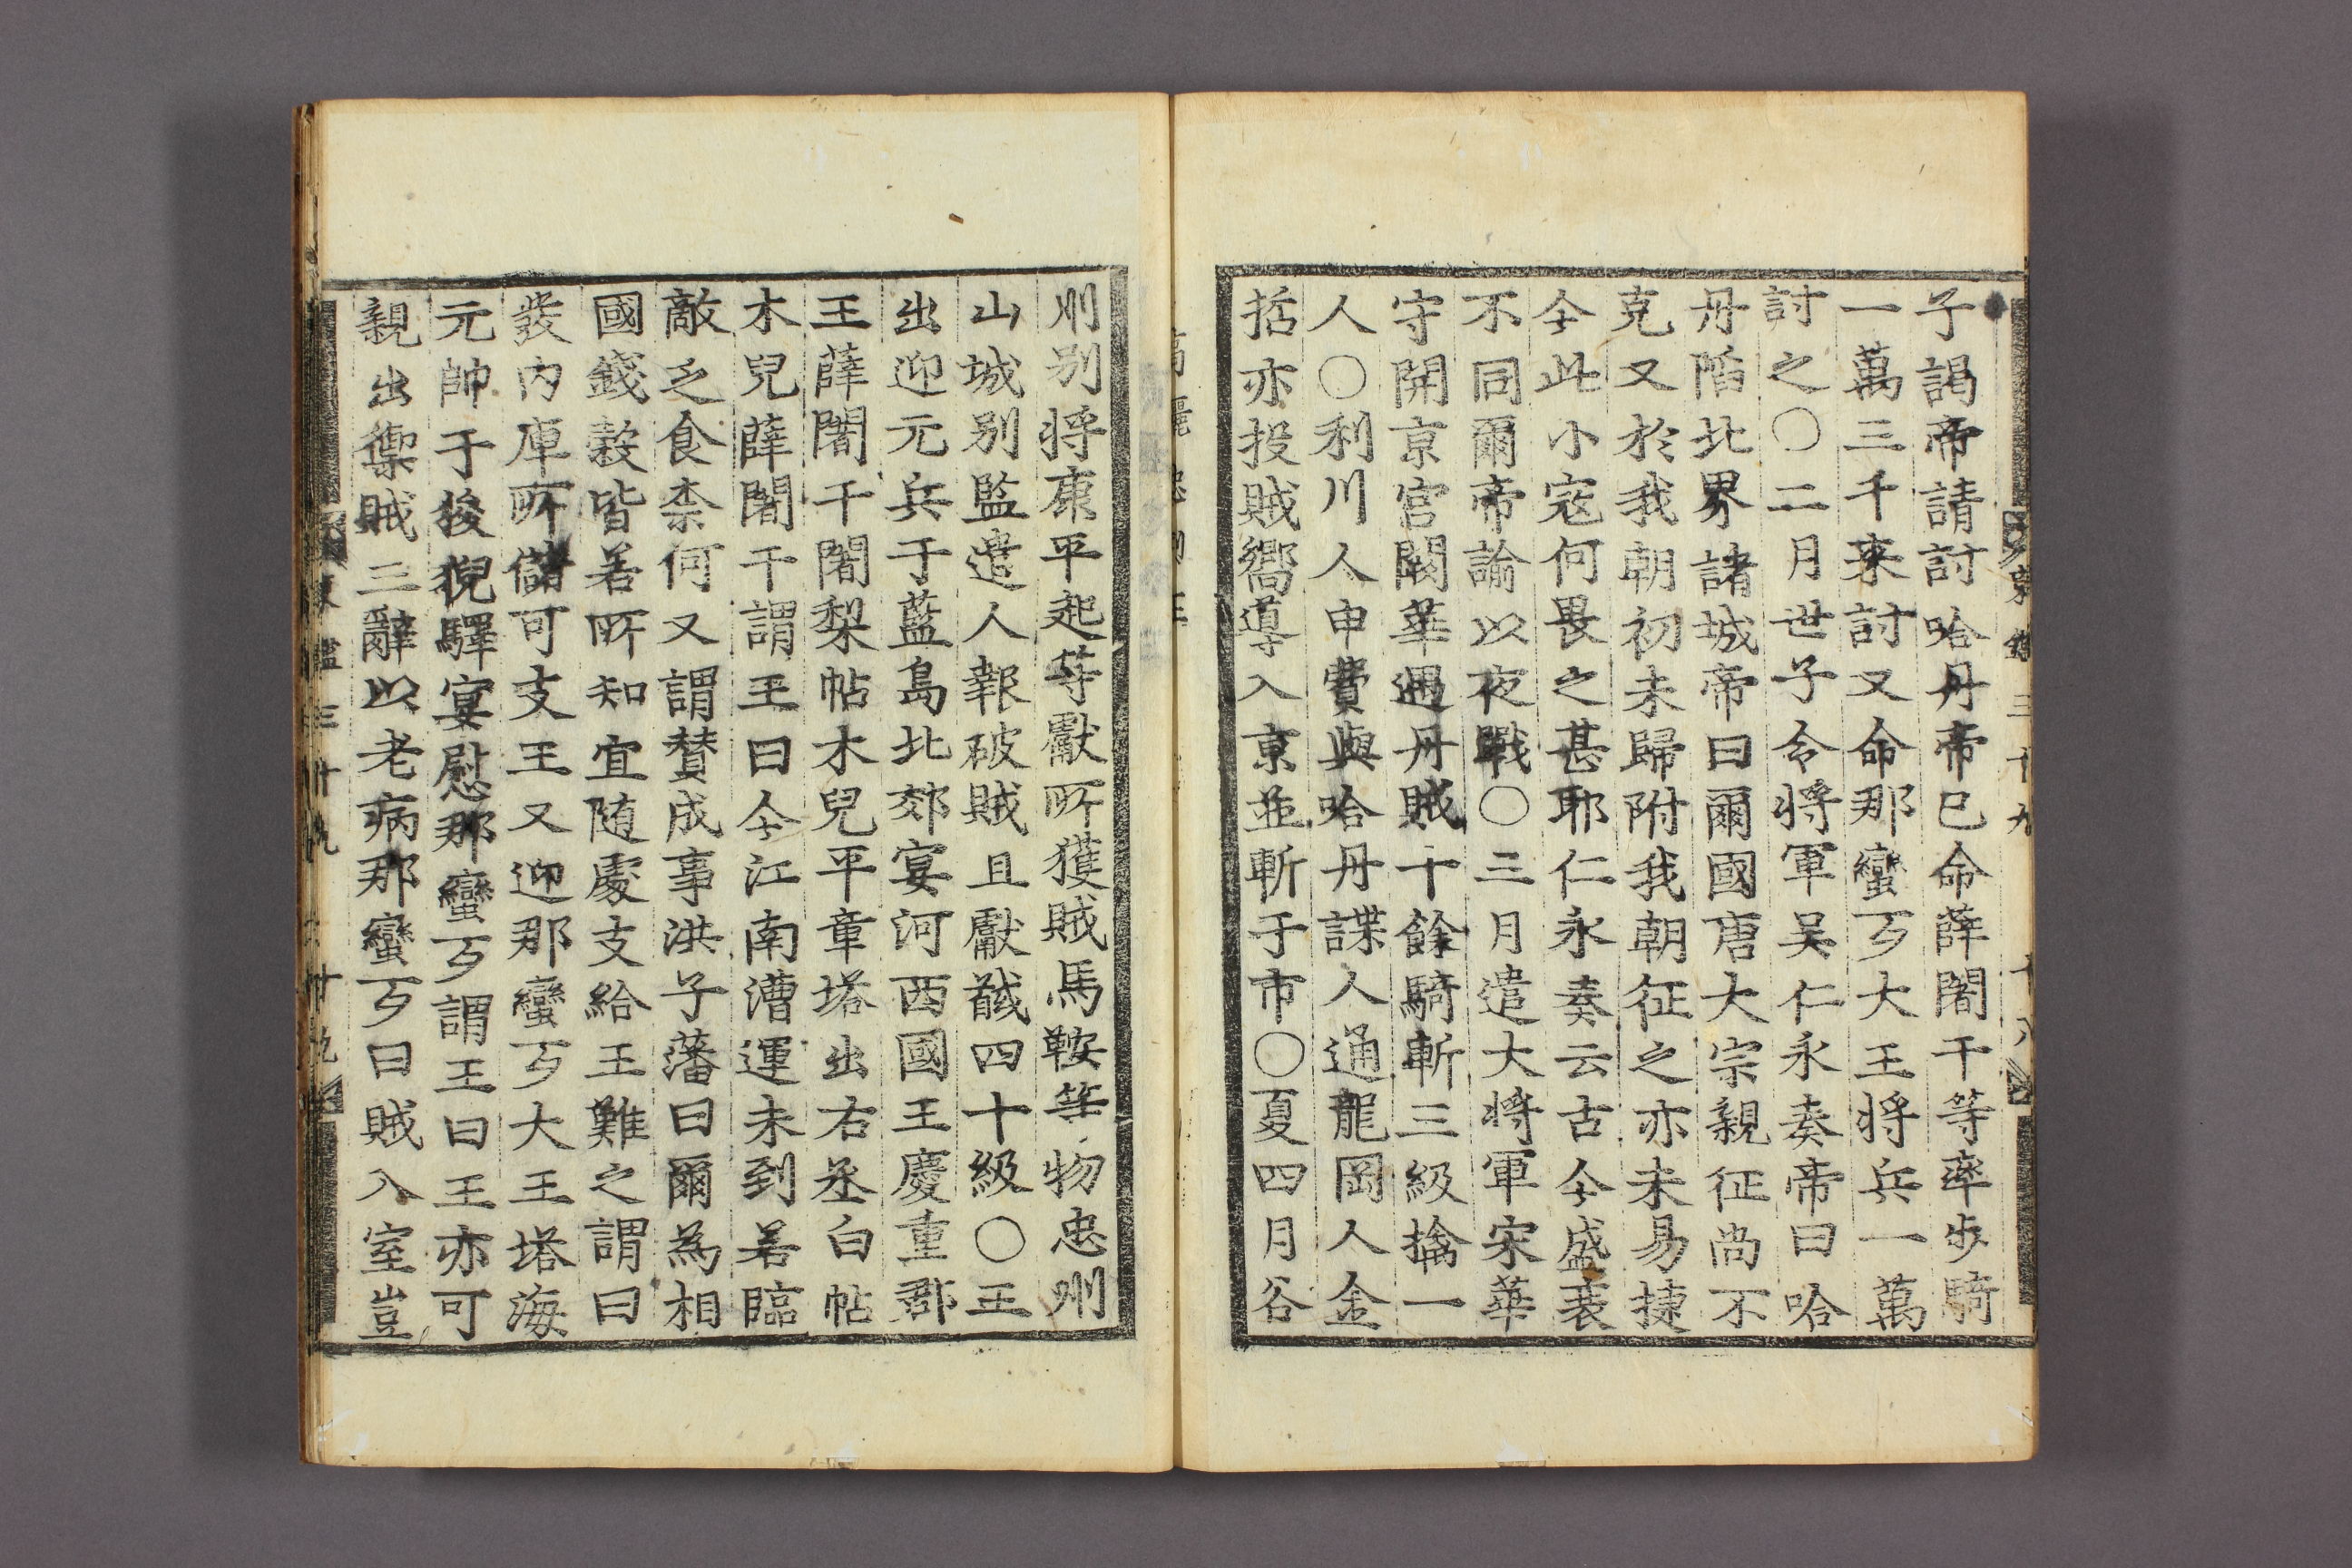 子謁帝請討哈丹帝已命薛闍干等率步騎
一萬三千来討又命那蠻歹大王将兵一萬
討之〇二月世子令将軍吴仁永奏帝曰哈
丹陷北界諸城帝曰爾國唐大宗親征尚不
克又於我朝初未歸附我朝征之亦未易捷
今此小寇何畏之甚耶仁永奏云古今盛衰
不同爾帝諭以夜戰〇三月遣大将軍宋華
守開京宫闕華遇丹賊十餘騎斬三級擒一
人〇利川人申費與哈丹諜人通龍岡人金
括亦投賊嚮導入京並斬于市〇夏四月谷
州别将康平起等獻所獲賊馬鞍等物忠州
山城别監遣人報破賊且獻馘四十級〇王
出迎元兵于藍島北郊宴河西國王慶重郡
王薛闍干闍梨帖木兒平章塔出右丞白帖
木兒薛闍干謂王曰今江南漕運未到若臨
敵乏食柰何又謂賛成事洪子藩曰爾為相
國錢穀皆若所知宜随處支給王難之謂曰
發内庫所儲可支王又迎那蠻歹大王塔海
元帥于狻猊驛宴慰那蠻歹謂王曰王亦可
親出禦賊三辭以老病那蠻歹曰賊入室豈
東鑑三十九 十九